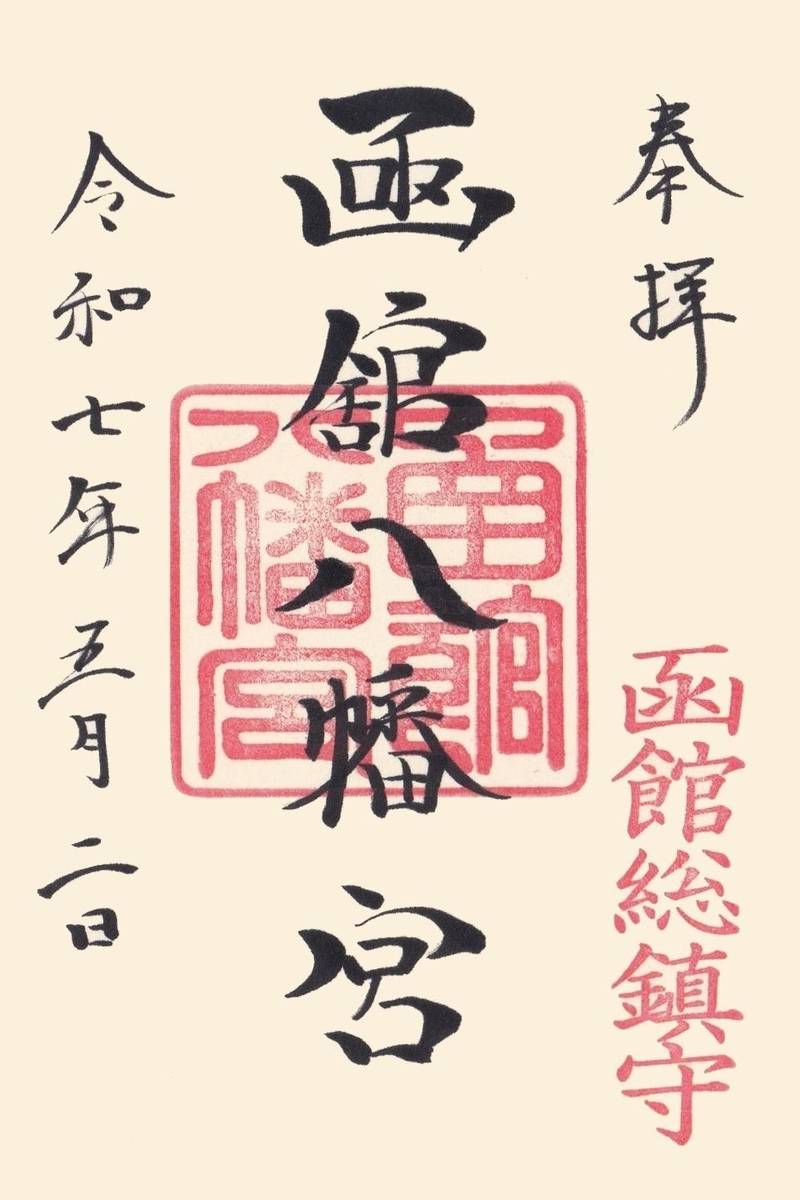 奉拝
函館総鎮守
函舘八幡宮
函館
八幡宮
令和七年五月二日